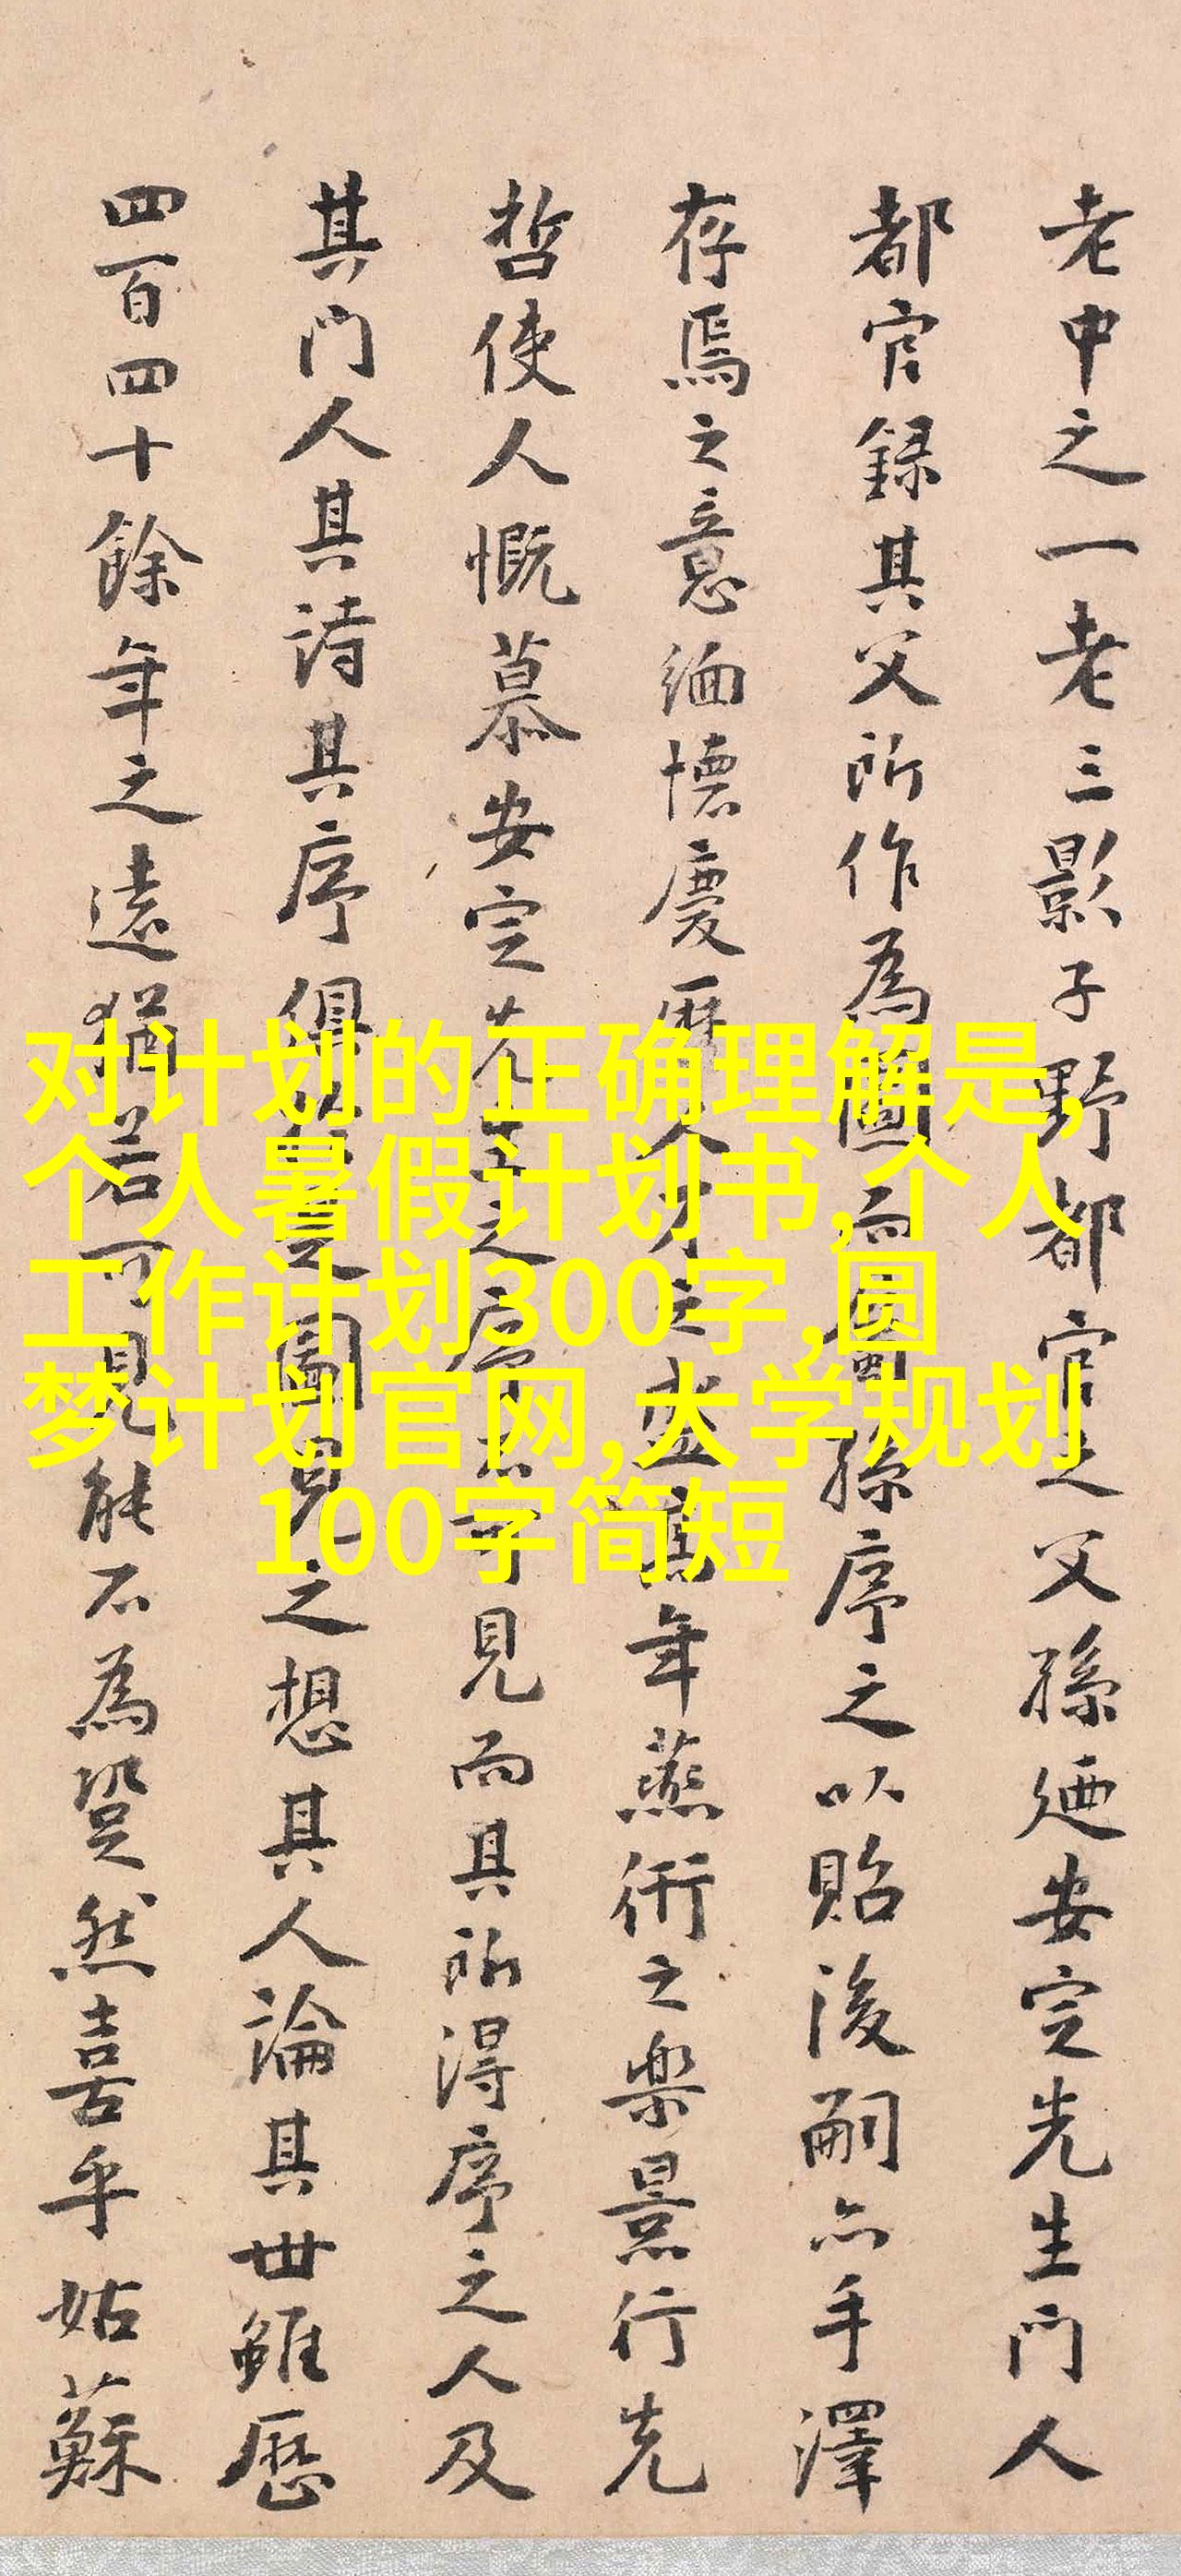 老中之一老三影子野都官之父孫廼安定先生門人
都官録其父所作為圖而孫序之以貽後嗣亦手澤
存焉之意緬懷慶曆人才之盛高年燕衎之樂景行先
哲使人慨慕安定先生之序不可見而其所得序之人及
其門人其詩其序俱存是圖見之想其人論其世雖歷
四百四十餘年之遠猶若可見能不為跫然喜乎姑蘇
对计划的正确理解是,
个人暑假计划书,个人
工作计划300字,圆
梦计划官网,大学规划
100字简短